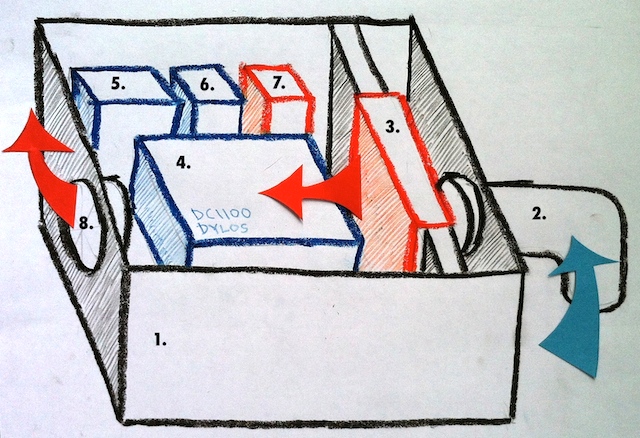 5.
6.
7.
3.
4.
DC1100
DYLOS
8.
2.
1.